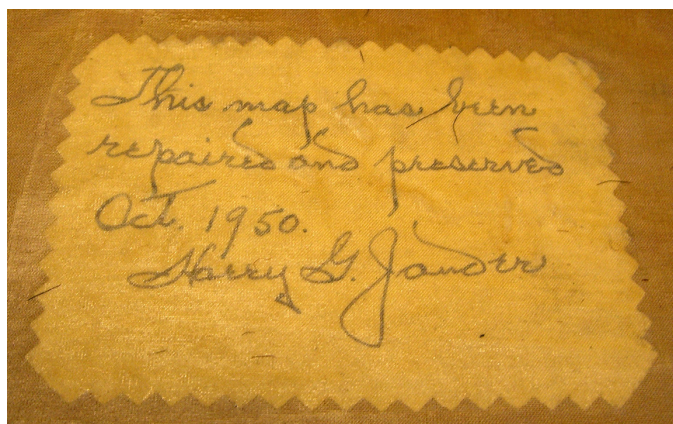 This map has been
repaired and preserved
Oct. 1950.
Harry G. Jander